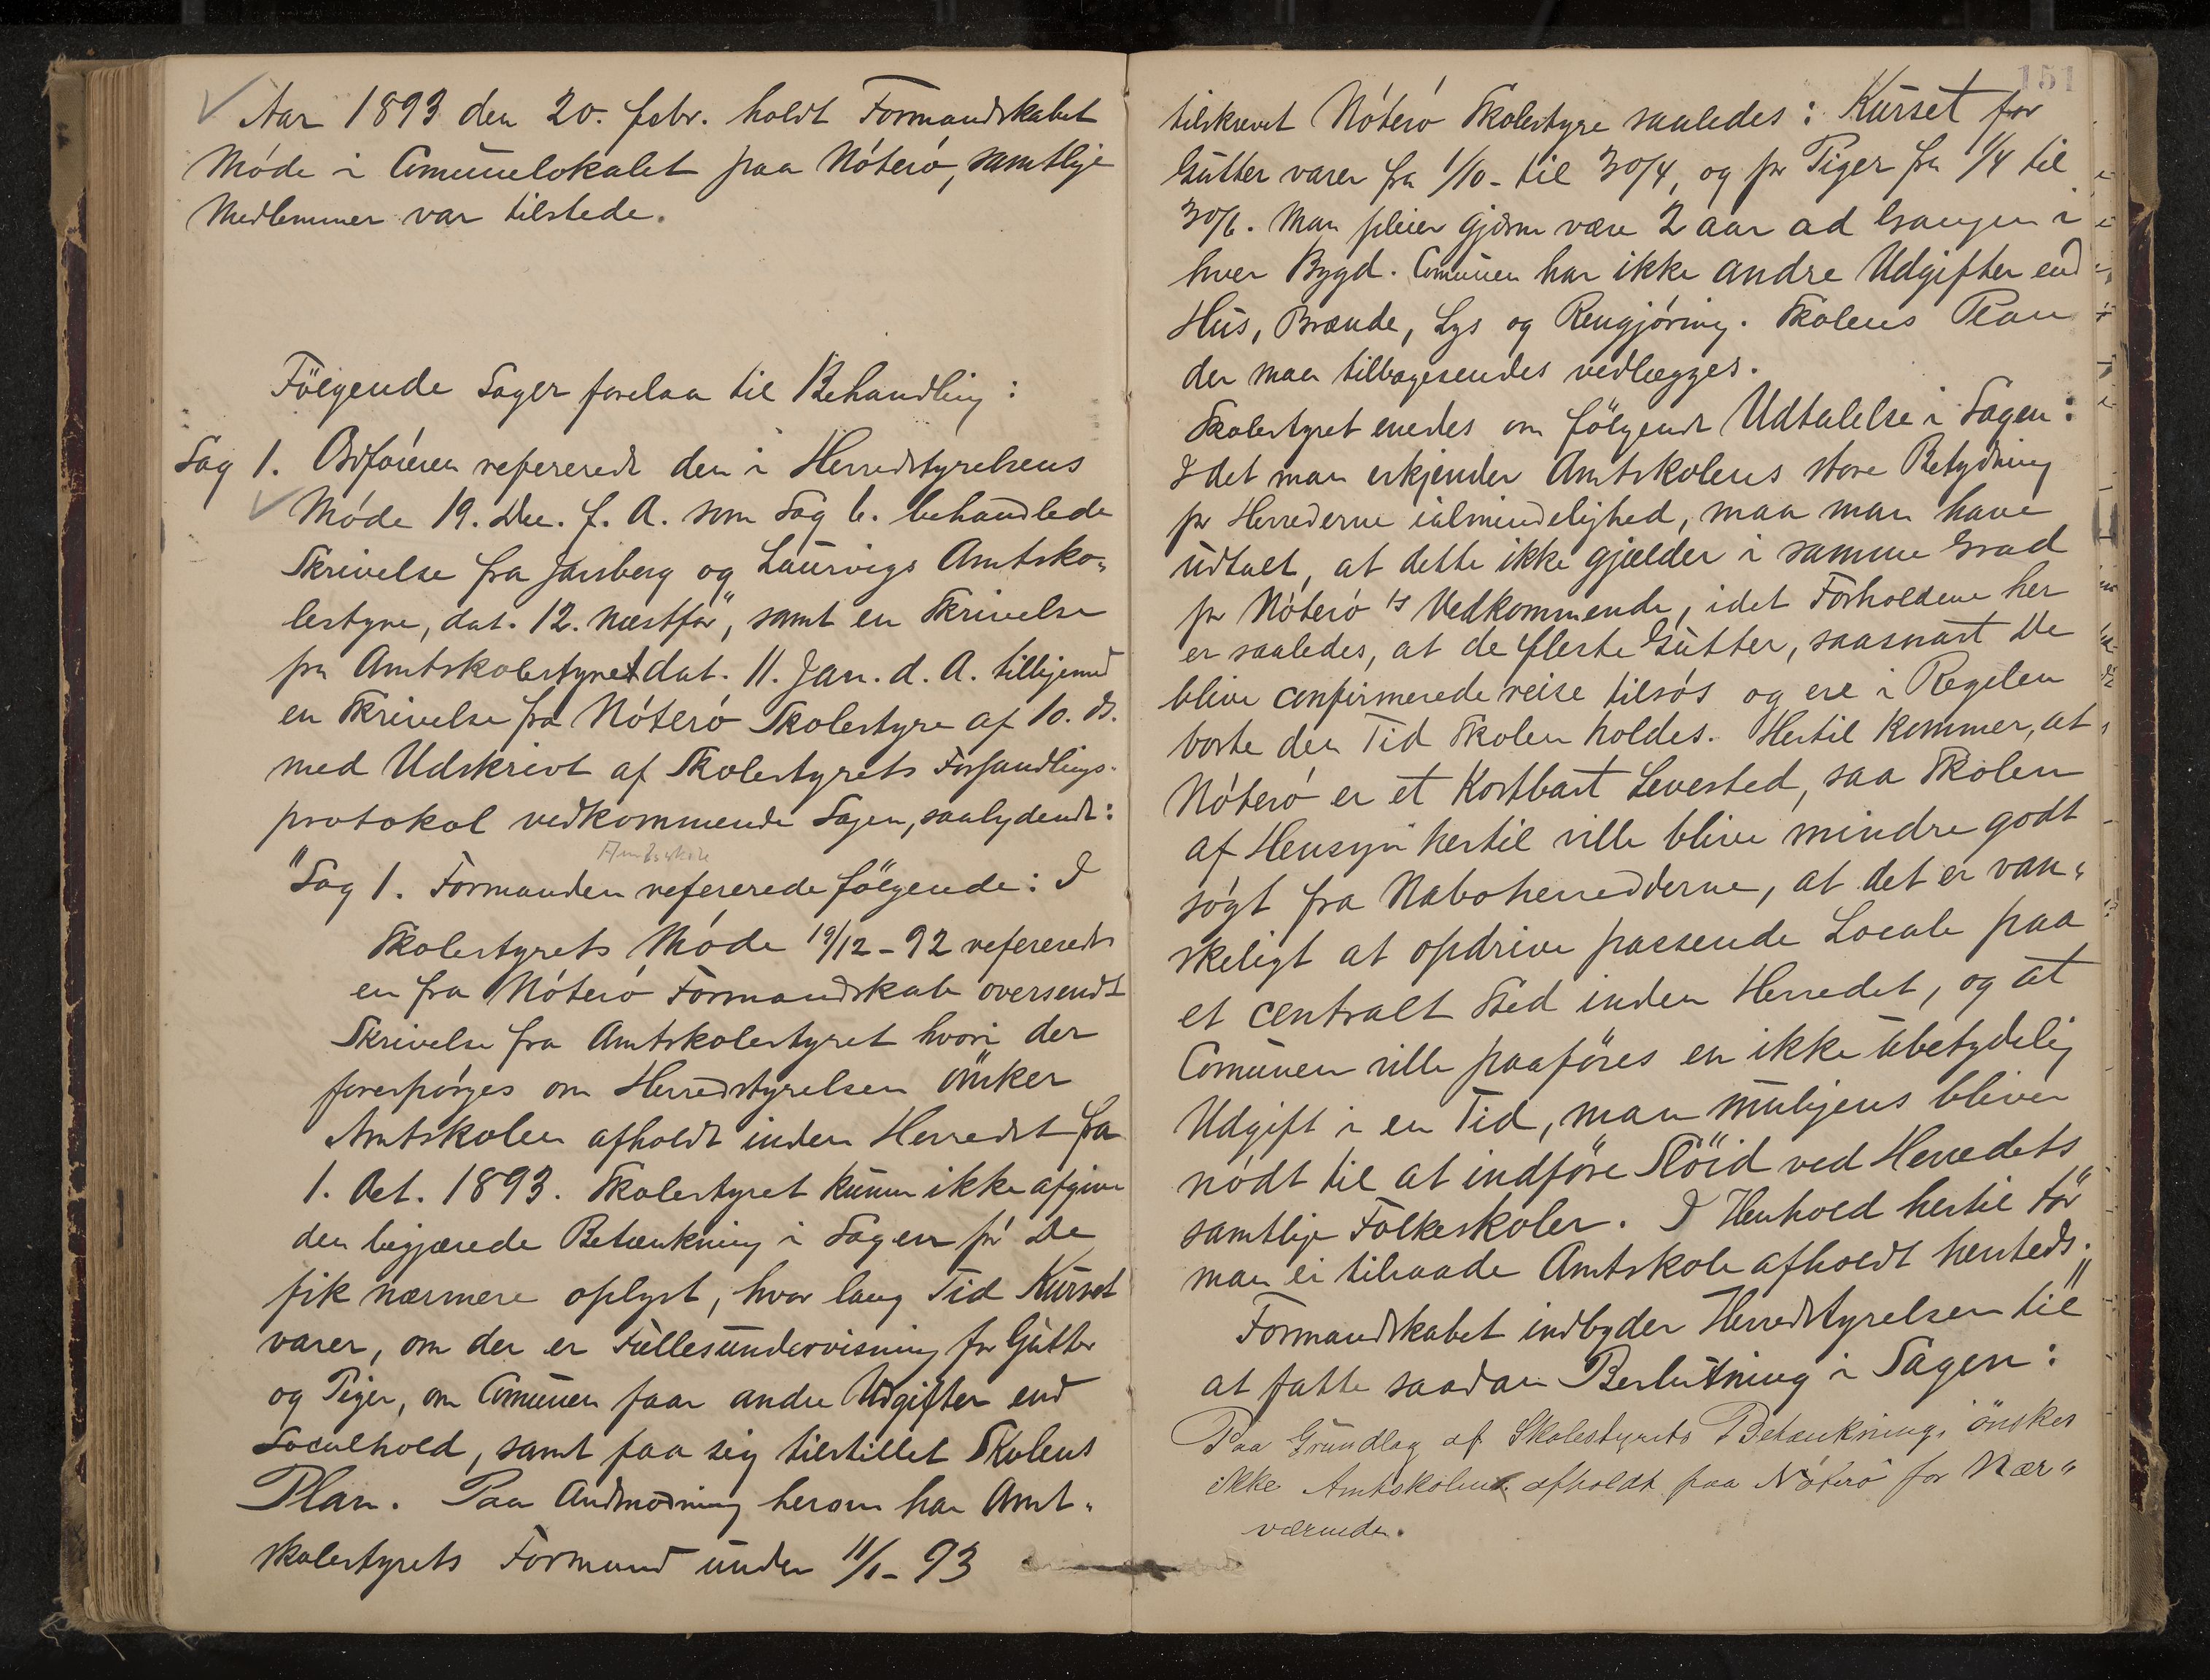 Aar 1893 den 20. febr. holdt Formandskabet
Møde i Comunelokalet paa Nøterø, samtlige
Medlemmer var tilstede.
Følgende Sager forelaa til Behandling:
Sag 1. Ordføreren refererede den i Herredstyrelsens
Møde 19. Dec. f. A. som Sag 6. behandlede
Skrivelse fra Jarsberg og Laurvigs Amtsko-
lestyre, dat. 12. næstfør, samt en Skrivelse
fra Amtskolestyret dat. 11. Jan. d. A. tilligemed
en Skrivelse fra Nøterø Skolestyre af 10. ds.
med Udskrivt af Skolestyrets Forhandlings-
protokol vedkommende Sagen, saalydende:
Amtsskole
"Sag 1. Formanden refererede følgende: I
Skolestyrets Møde 19/12-92 refereredes
en fra Nøterø Formandskab oversendt
Skrivelse fra Amtskolestyret hvori der
forespørges om Herredstyrelsen ønsker
Amtskolen afholdt inden Herredet fra
1. Oct. 1893. Skolestyret kunne ikke afgive
den begjærede Betænkning i Sagen før De
fik nærmere oplyst, hvor lang Tid Kurset
varer, om der er Fællesundervisning for Gutter
og Piger, om Comunen faar andre Udgifter end
Localhold, samt faa sig tilstillet Skolens
Plan. Paa Andmodning herom har Amt-
skolestyrets Formand under 11/1-93
151
tilskrevet Nøterø Skolestyre saaledes: Kurset for
Gutter varer fra 1/10- til 30/4, og for Piger fra 1/4 til
30/6. Man pleier gjerne være 2 aar ad Gangen i
hver Bygd. Comunen har ikke andre Udgifter end
Hus, Brænde, Lys og Rengjøring. Skolens Plan
der maa tilbagesendes vedlægges.
Skolestyret enedes om følgende Udtalelse i Sagen:
Idet man erkjender Amtskolens store Betydning
for Herrederne ialmindelighed, maa man have
udtalt, at dette ikke gjælder i samme Grad
for Nøterø's Vedkommende, idet Forholdene her
er saaledes, at de fleste Gutter, saasnart De
blive confirmerede reise tilsøs og ere i Regelen
borte den Tid Skolen holdes. Hertil kommer, at
Nøterø er et kostbart Levested, saa Skolen
af Hensyn hertil ville blive mindre godt
søgt fra Naboherrederne, at det er van-
skeligt at opdrive passende Locale paa
et centralt Sted inden Herredet, og at
Comunen ville paaføres en ikke ubetydelig
Udgift i en Tid, man muligens bliver
nødt til at indføre Sløid ved Herredets
samtlige Folkeskoler. I Henhold hertil tør
man ei tilraade Amtskole afholdt hersteds."
Formandskabet indbyder Herredstyrelsen til
at fatte saadan Beslutning i Sagen:
Paa Grundlag af Skolestyrets Betænkning, ønskes
ikke Amtskolen afholdt paa Nøterø for Nær-
værende.